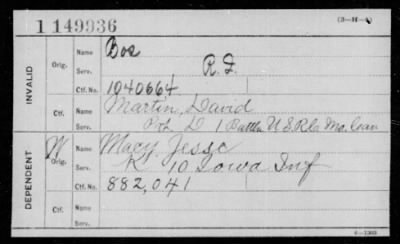 (3-M-4)
1 149936
INVALID
Orig.
Name Bos
Serv. R. I.
Ctf. No. 1040664
Ctf.
Name Martin, David
Serv. D 1 Battn U.S. Res Mo. Cav
DEPENDENT
W Orig.
Name Macy, Jesse
Serv. K 10 Iowa Inf
Ctf. No. 882,041
Ctf.
Name
Serv.